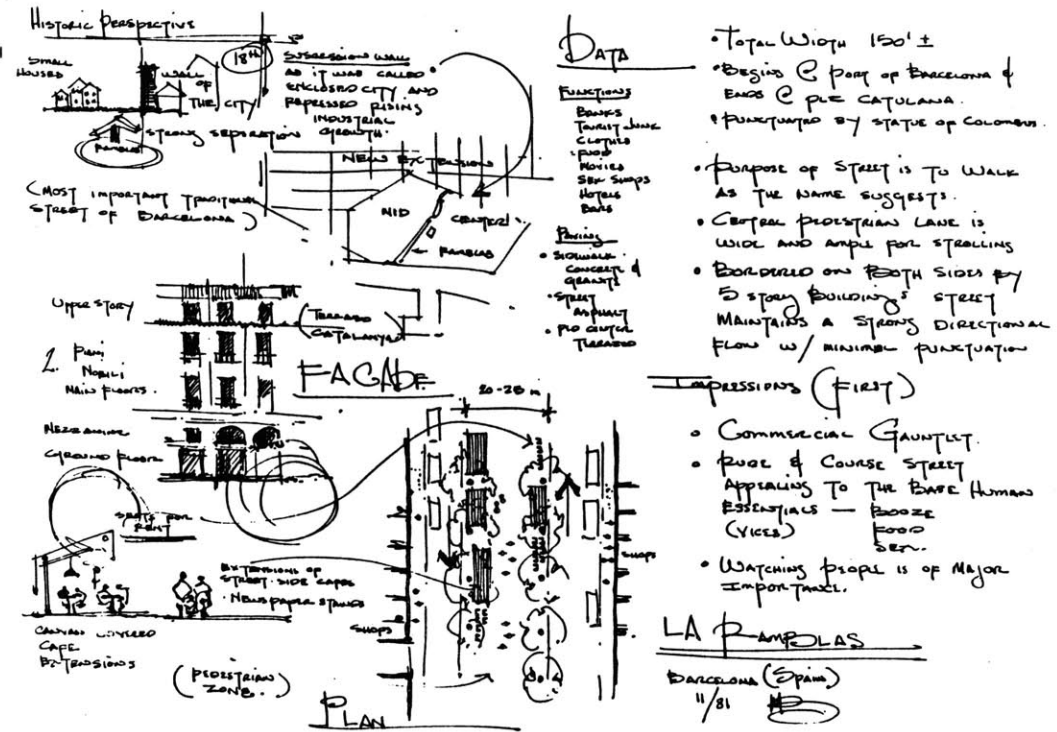 HISTORIC PERSPECTIVE
SMALL
HOUSES
WALL
OF
THE CITY
18TH
SUPRESSION WALL
AS IT WAS CALLED
ENCLOSED CITY AND
REPRESSED RISING
INDUSTRIAL
GROWTH.
STRONG SEPERATION
RAMBLAS
(MOST IMPORTANT TRADITIONAL
STREET OF BARCELONA)
NEW EXTENSION
MID
CENTER
RAMBLAS
UPPER STORY
2. PIANI
NOBILI
MAIN FLOORS.
MEZZANINE
GROUND FLOOR
FACADE
SEATS FOR
RENT
EXTENSIONS OF
STREET-SIDE CAFES
• NEWSPAPER STANDS
CANVAS COVERED
CAFE
EXTENSIONS
(PEDESTRIAN
ZONE.)
20-28 M
SHOPS
SHOPS
PLAN
DATA
FUNCTIONS
BANKS
TOURIST JUNK
CLOTHES
FOOD
MOVIES
SEX SHOPS
HOTELS
BARS
PAVING
• SIDEWALK
CONCRETE &
GRANITE
• STREET
ASPHALT
• PED CENTER
TERRAZZO
• TOTAL WIDTH 150' ±
• BEGINS @ PORT OF BARCELONA &
ENDS @ PLE CATULANA.
• PUNCTUATED BY STATUE OF COLOMBUS.
• PURPOSE OF STREET IS TO WALK
AS THE NAME SUGGESTS.
• CENTRAL PEDESTRIAN LANE IS
WIDE AND AMPLE FOR STROLLING
• BORDERED ON BOTH SIDES BY
5 STORY BUILDINGS STREET
MAINTAINS A STRONG DIRECTIONAL
FLOW W/ MINIMAL PUNCTUATION
IMPRESSIONS (FIRST)
• COMMERCIAL GAUNTLET.
• RUDE & COURSE STREET
APPEALING TO THE BASE HUMAN
ESSENTIALS — BOOZE
(VICES) FOOD
SEX.
• WATCHING PEOPLE IS OF MAJOR
IMPORTANCE.
LA RAMBLAS
BARCELONA (SPAIN)
11/81